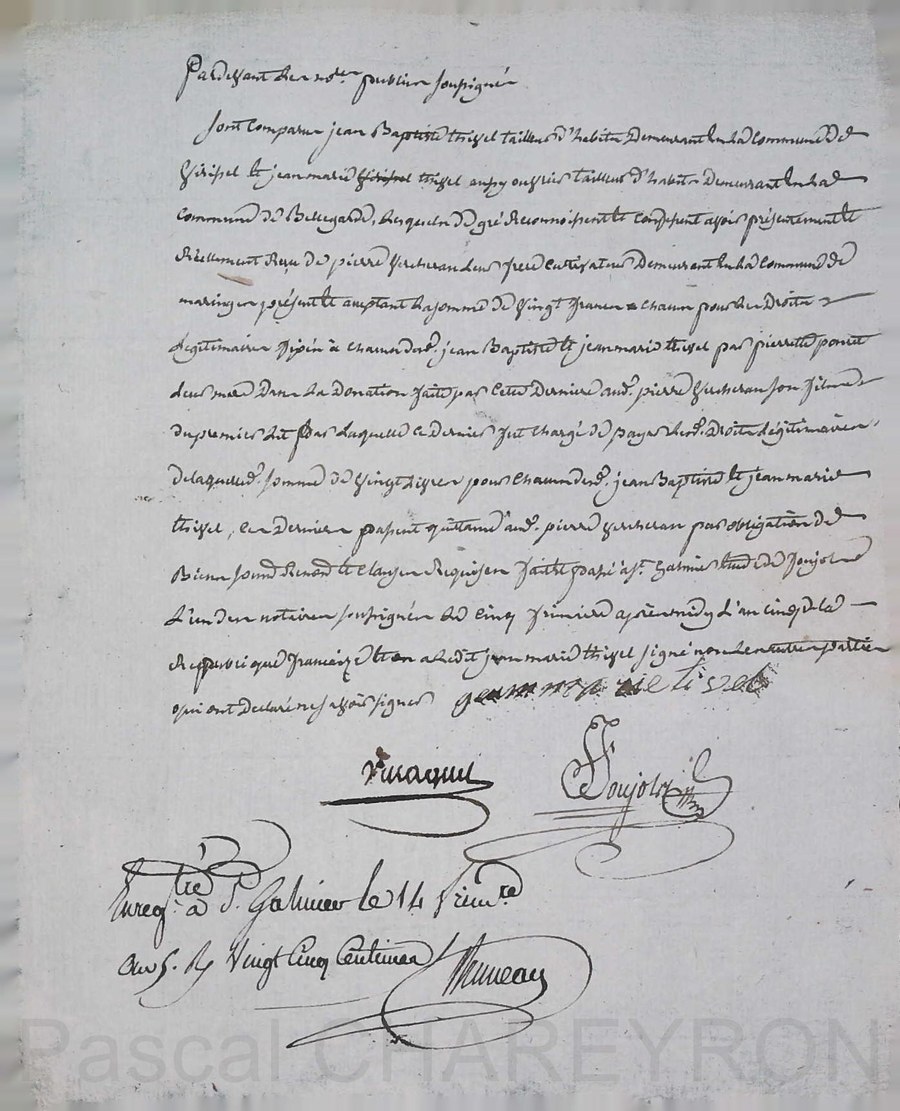 Pardevant les notes publics soussignés
Sont comparus jean Baptiste thisel tailleur d'habits Demeurant en la commune de
et jean marie thisel aussy ouvrier tailleur d'habits Demeurant en la
commune de Bellegarde, lesquels de gré Reconnoissent et confessent avoir présentement et
Réellement Reçu de pierre leur frere cultivateur Demeurant en la commune de
maringes présent et acceptant la somme de vingt francs chacun pour les Droits
légitimaires fixés à chacun desd. jean Baptiste et jean marie thisel par pierrette poncet
leur mere Dans la Donation faite par cette Derniere aud. pierre son fils
du premier lit par laquelle ce dernier fut chargé de payer lesd. Droits légitimaires,
de laquelle somme de vingt livres pour chacun desd. jean Baptiste et jean marie
thisel, ces Derniers passent quittance aud. pierre par obligation de
Biens soumis Renoncé et clauses Requises fait et passé à St. Galmier étude de Ponjolz
L'un des notaires soussignés le cinq frimaire après midy l'an cinq de la
Republique française et a ledit jean marie thisel signé non les autres parties
qui ont Declaré ne savoir signer jeanmarie tisel
Ponjolz
Enregtré à St. Galmier le 14 frimre
an 5. R Vingt Cinq Centimes Bruneau
Pascal CHAREYRON